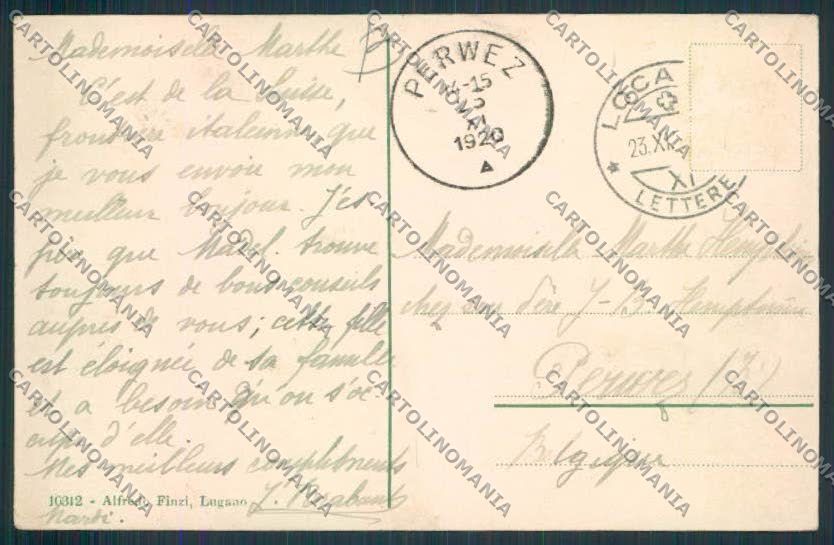 Mademoiselle Marthe
C'est de la Suisse,
frontière italienne que
je vous envoie mon
meilleur bonjour. J'es-
père que Madel. trouve
toujours de bons conseils
auprès de vous; cette fille
est éloignée de sa famille
et a besoin qu'on s'oc-
cupe d'elle.
Mes meilleurs compliments
J.
Mardi.
10312 - Alfredo Finzi, Lugano
PERWEZ
-15
1920
LOCA
23.XI
XI
LETTERE
Mademoiselle Marthe
chez son père J-B.
Perwez (
Belgique
CARTOLINOMANIA